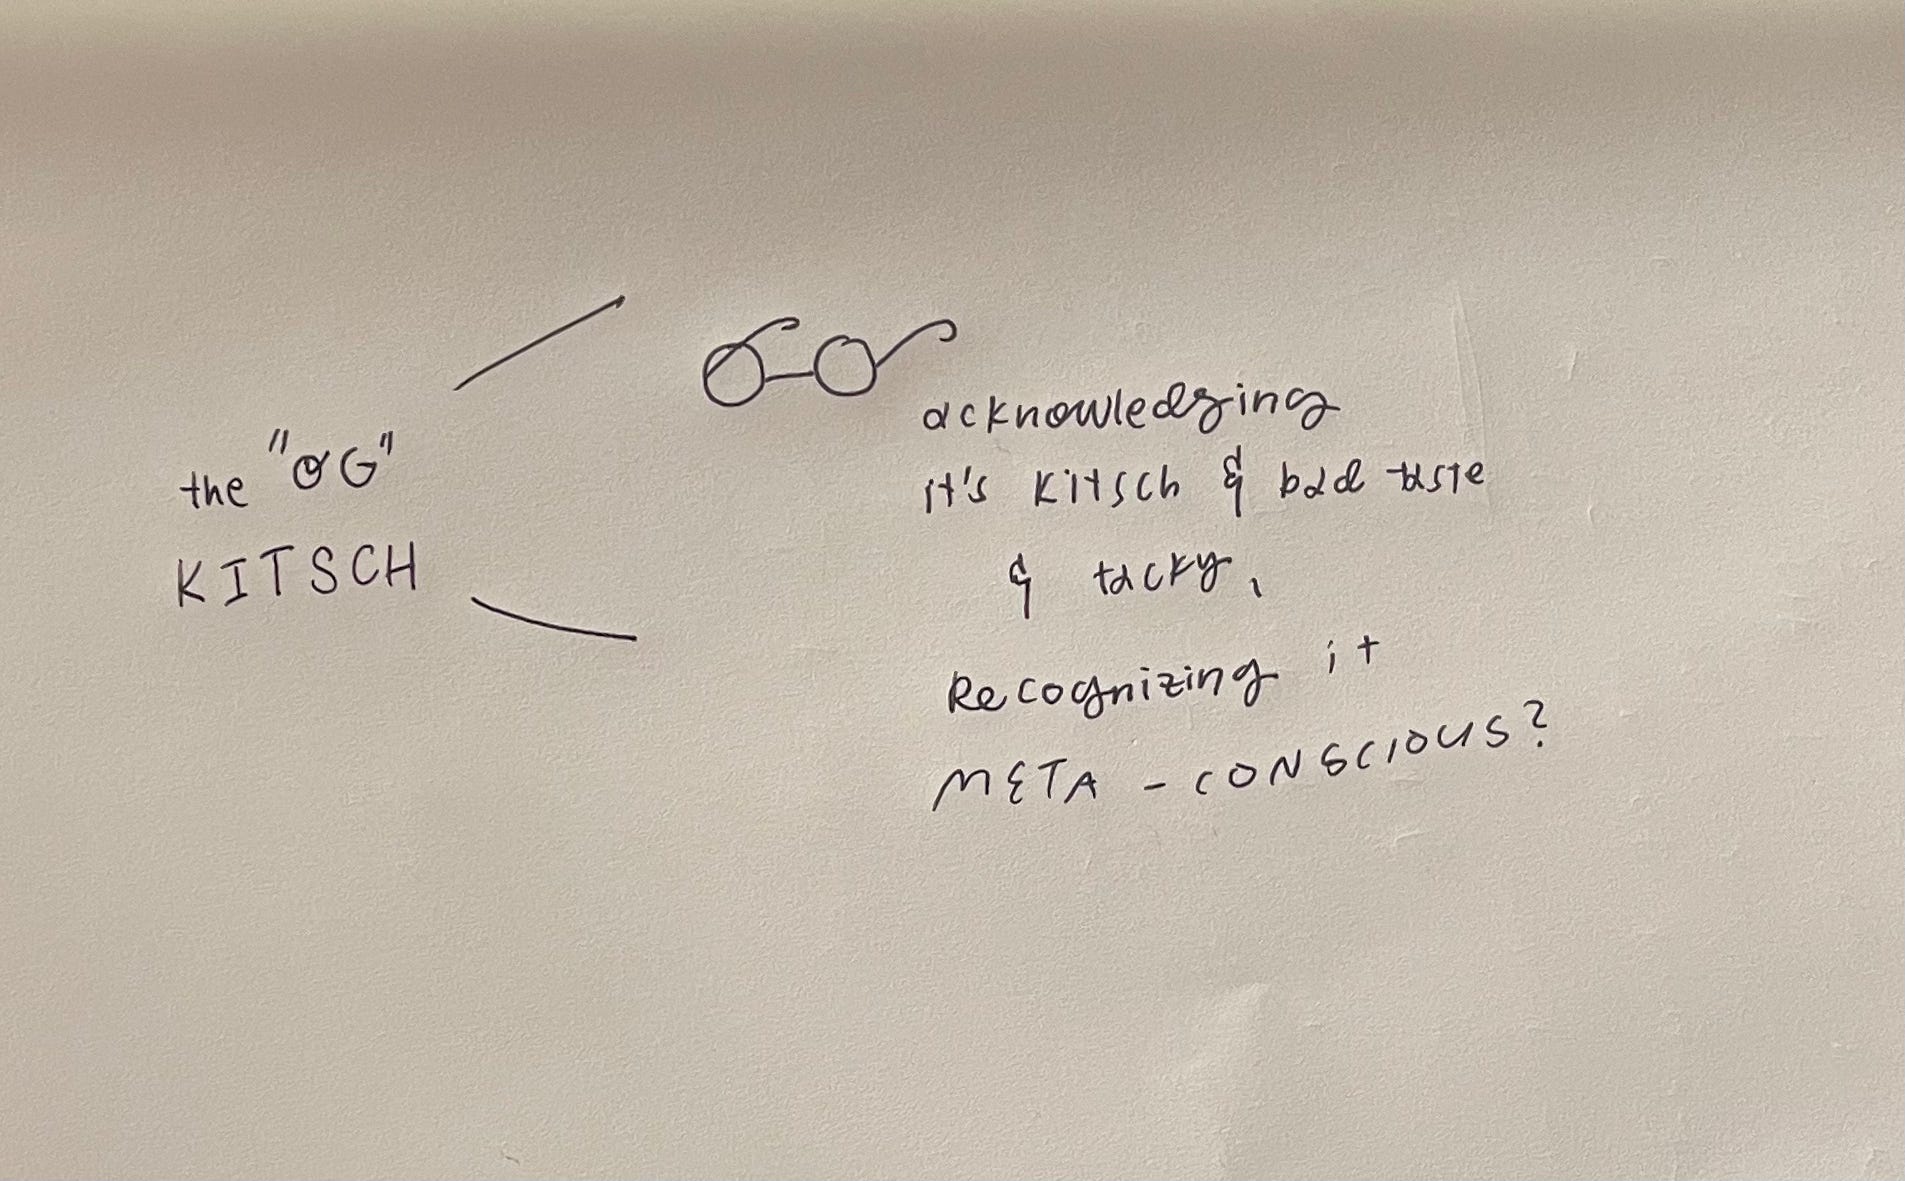 the "OG"
KITSCH
acknowledging
it's kitsch & bad taste
& tacky,
Recognizing it
META - CONSCIOUS?